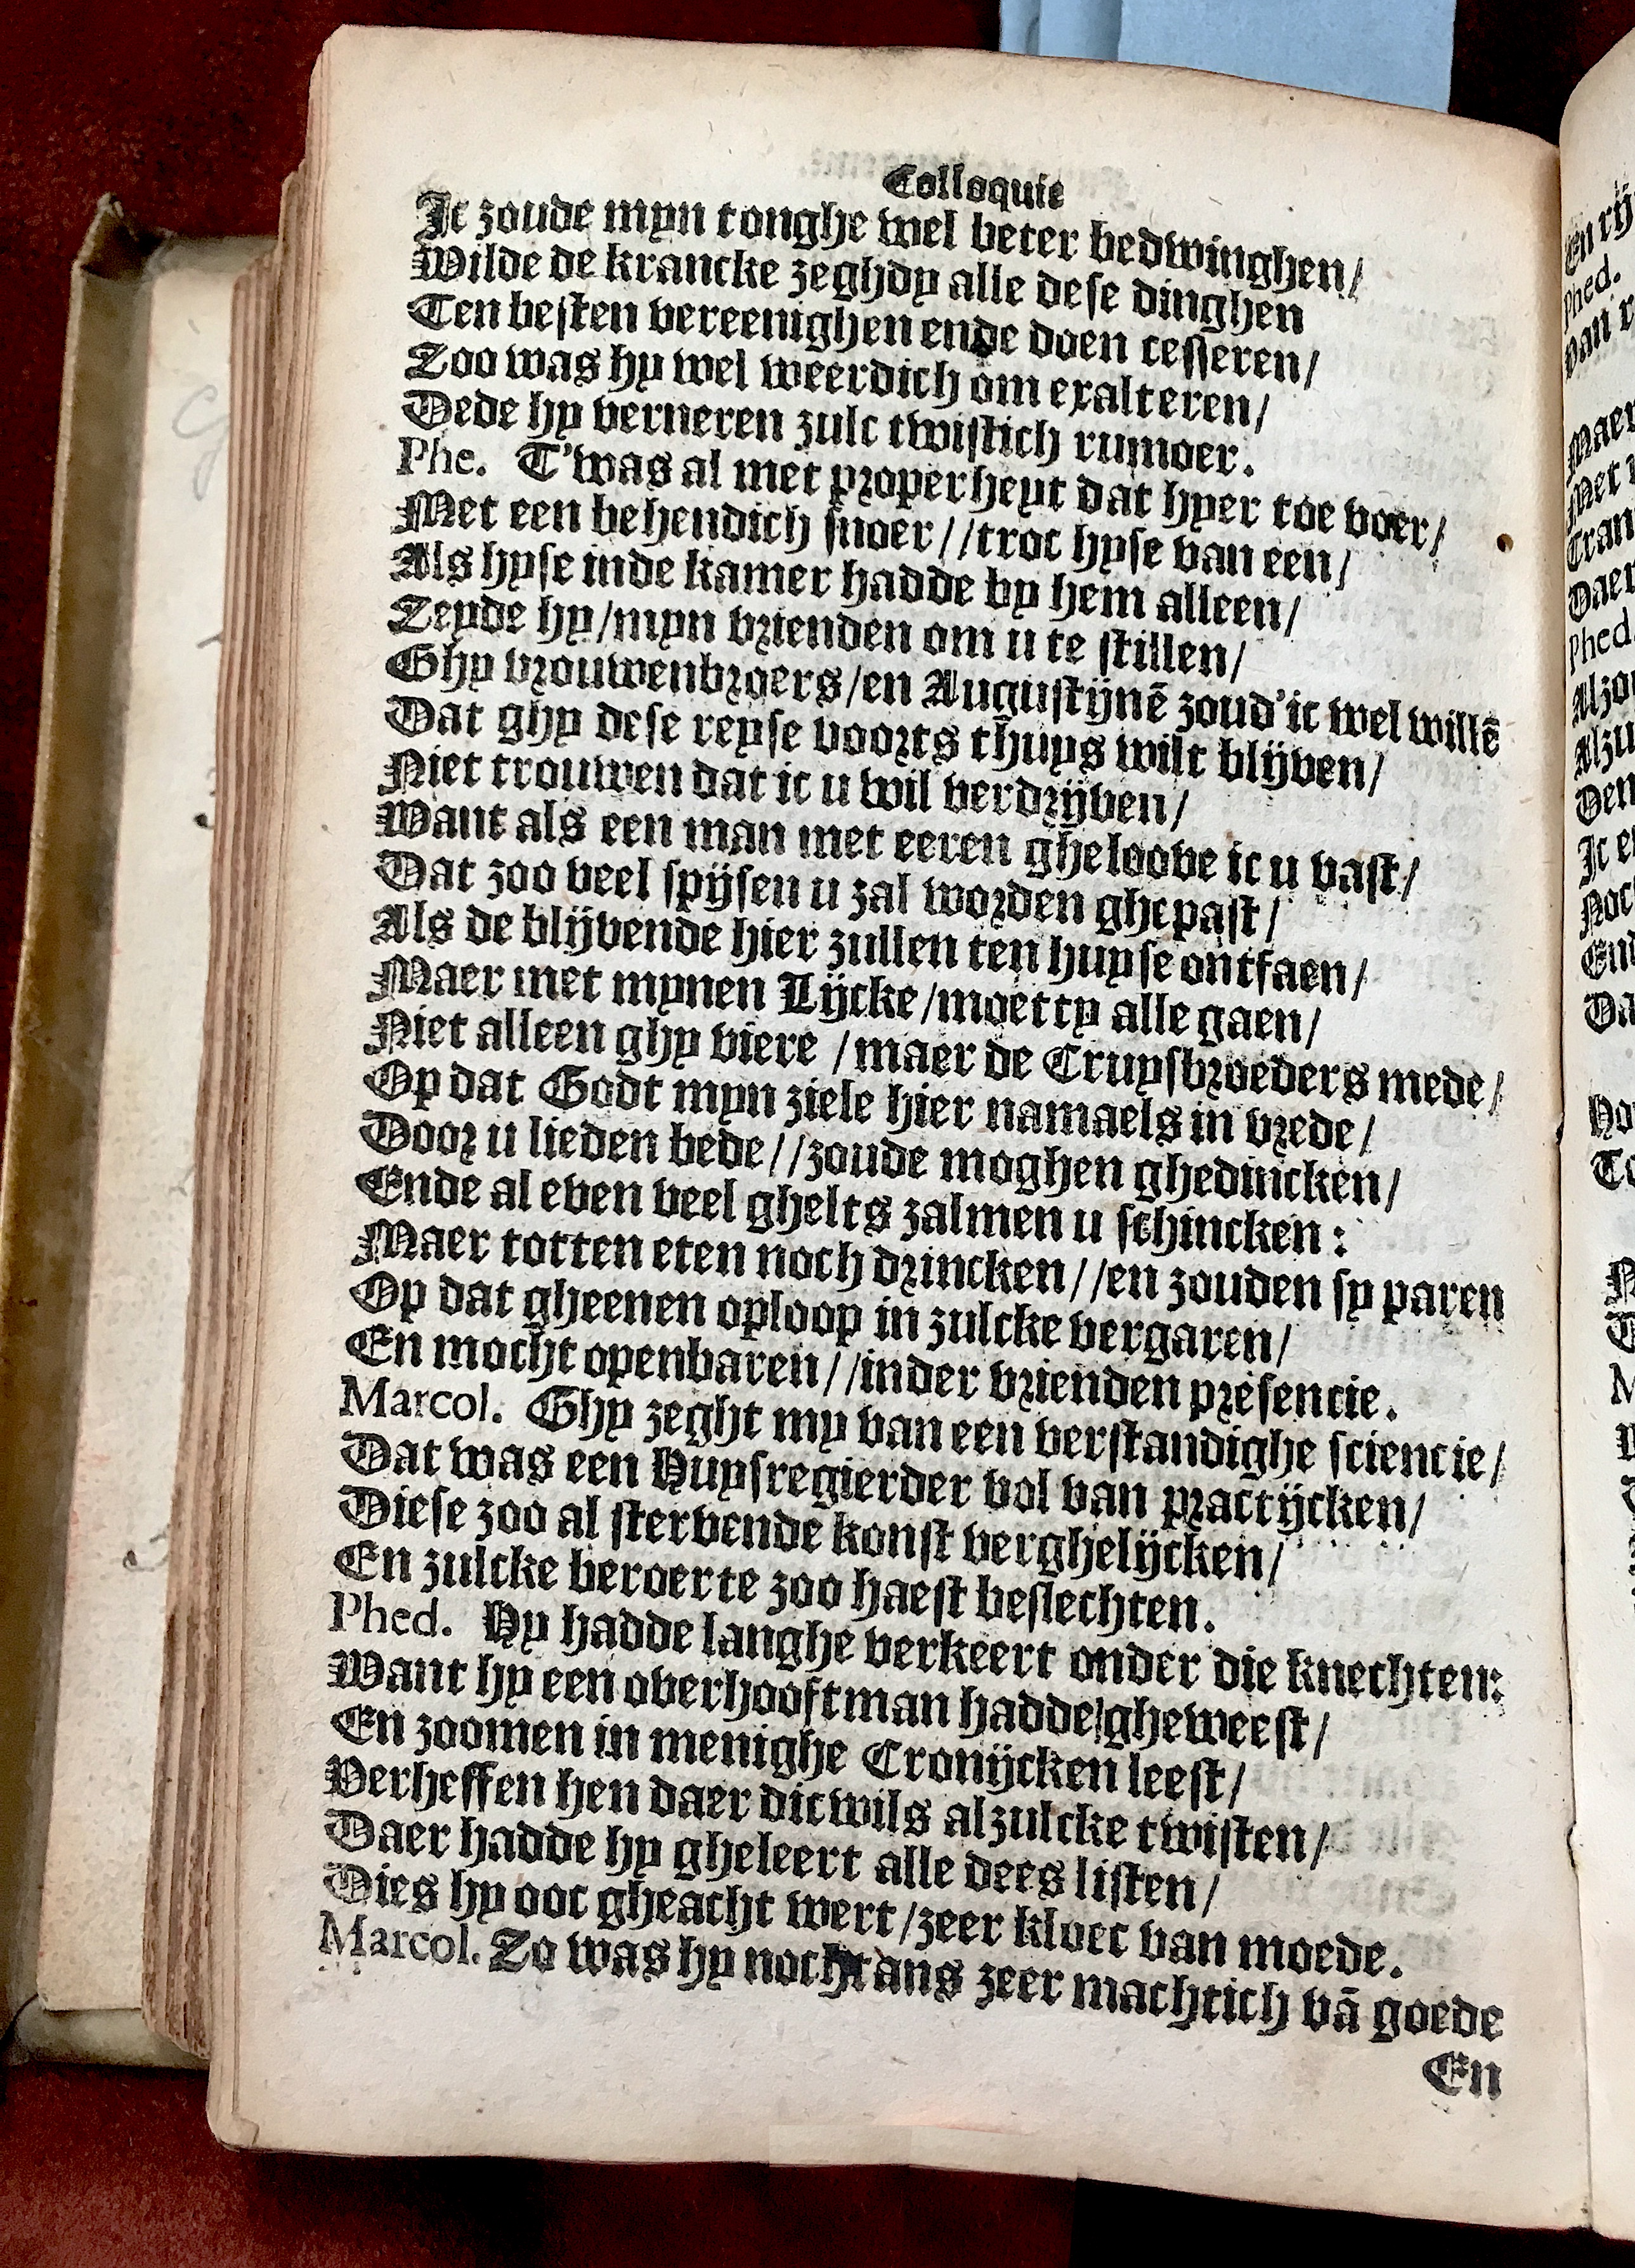 Colloquie
Ic zoude myn tonghe wel beter bedwinghen/
Wilde de krancke zeghdy alle dese dinghen
Ten besten vereenighen ende doen cesseren/
Zoo was hy wel weerdich om exalteren/
Dede hy verneren zulc twistich rumoer.
Phe. T'was al met properheyt dat hyer toe voer/
Met een behendich snoer//troc hyse van een/
Als hyse inde kamer hadde by hem alleen/
Zeyde hy/myn vrienden om u te stillen/
Ghy vrouwenbroers/en Augustijnē zoud'ic wel willē
Dat ghy dese reyse voorts thuys wilt blijven/
Niet trouwen dat ic u wil verdrijven/
Want als een man met eeren gheloove ic u vast/
Dat zoo veel spijsen u zal worden ghepast/
Als de blijvende hier zullen ten huyse ontfaen/
Maer met mynen Lijcke/moetty alle gaen/
Niet alleen ghy viere /maer de Cruysbroeders mede/
Op dat Godt myn ziele hier namaels in vrede/
Door u lieden bede//zoude moghen ghedincken/
Ende al even veel ghelts zalmen u schincken:
Maer totten eten noch drincken//en zouden sy paren
Op dat gheenen oploop in zulcke vergaren/
En mocht openbaren//inder vrienden presencie.
Marcol. Ghy zeght my van een verstandighe sciencie/
Dat was een Huysregierder vol van practijcken/
Diese zoo al stervende konst verghelijcken/
En zulcke beroerte zoo haest beslechten.
Phed. Hy hadde langhe verkeert onder die knechten:
Want hy een overhooftman hadde gheweest/
En zoomen in menighe Cronijcken leest/
Verheffen hen daer dicwils alzulcke twisten/
Daer hadde hy gheleert alle dees listen/
Dies hy ooc gheacht wert/zeer kloec van moede.
Marcol. Zo was hy nochtans zeer machtich vā goede
En